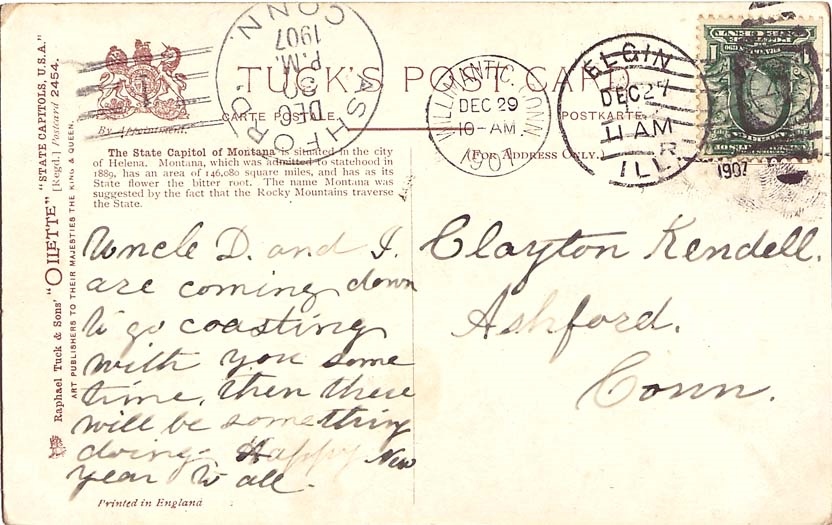 TUCK'S POST CARD
CARTE POSTALE.
POSTKARTE.
(FOR ADDRESS ONLY.)
By Appointment.
The State Capitol of Montana is situated in the city
of Helena. Montana, which was admitted to statehood in
1889, has an area of 146,080 square miles, and has as its
State flower the bitter root. The name Montana was
suggested by the fact that the Rocky Mountains traverse
the State.
Raphael Tuck & Sons' "OILETTE" "STATE CAPITOLS, U.S.A."
[Regd.] Postcard 2454.
ART PUBLISHERS TO THEIR MAJESTIES THE KING & QUEEN.
ASHFORD.
CONN.
DEC
30
P.M.
1907
1
WILLIMANTIC, CONN.
DEC 29
10-AM
1907
ELGIN
DEC 27
11 AM
ILL.
1907
Uncle D. and I.
are coming down
to go coasting
with you some
time, then there
will be something
doing. Happy New
year to all.
Clayton Kendell.
Ashford.
Conn.
Printed in England